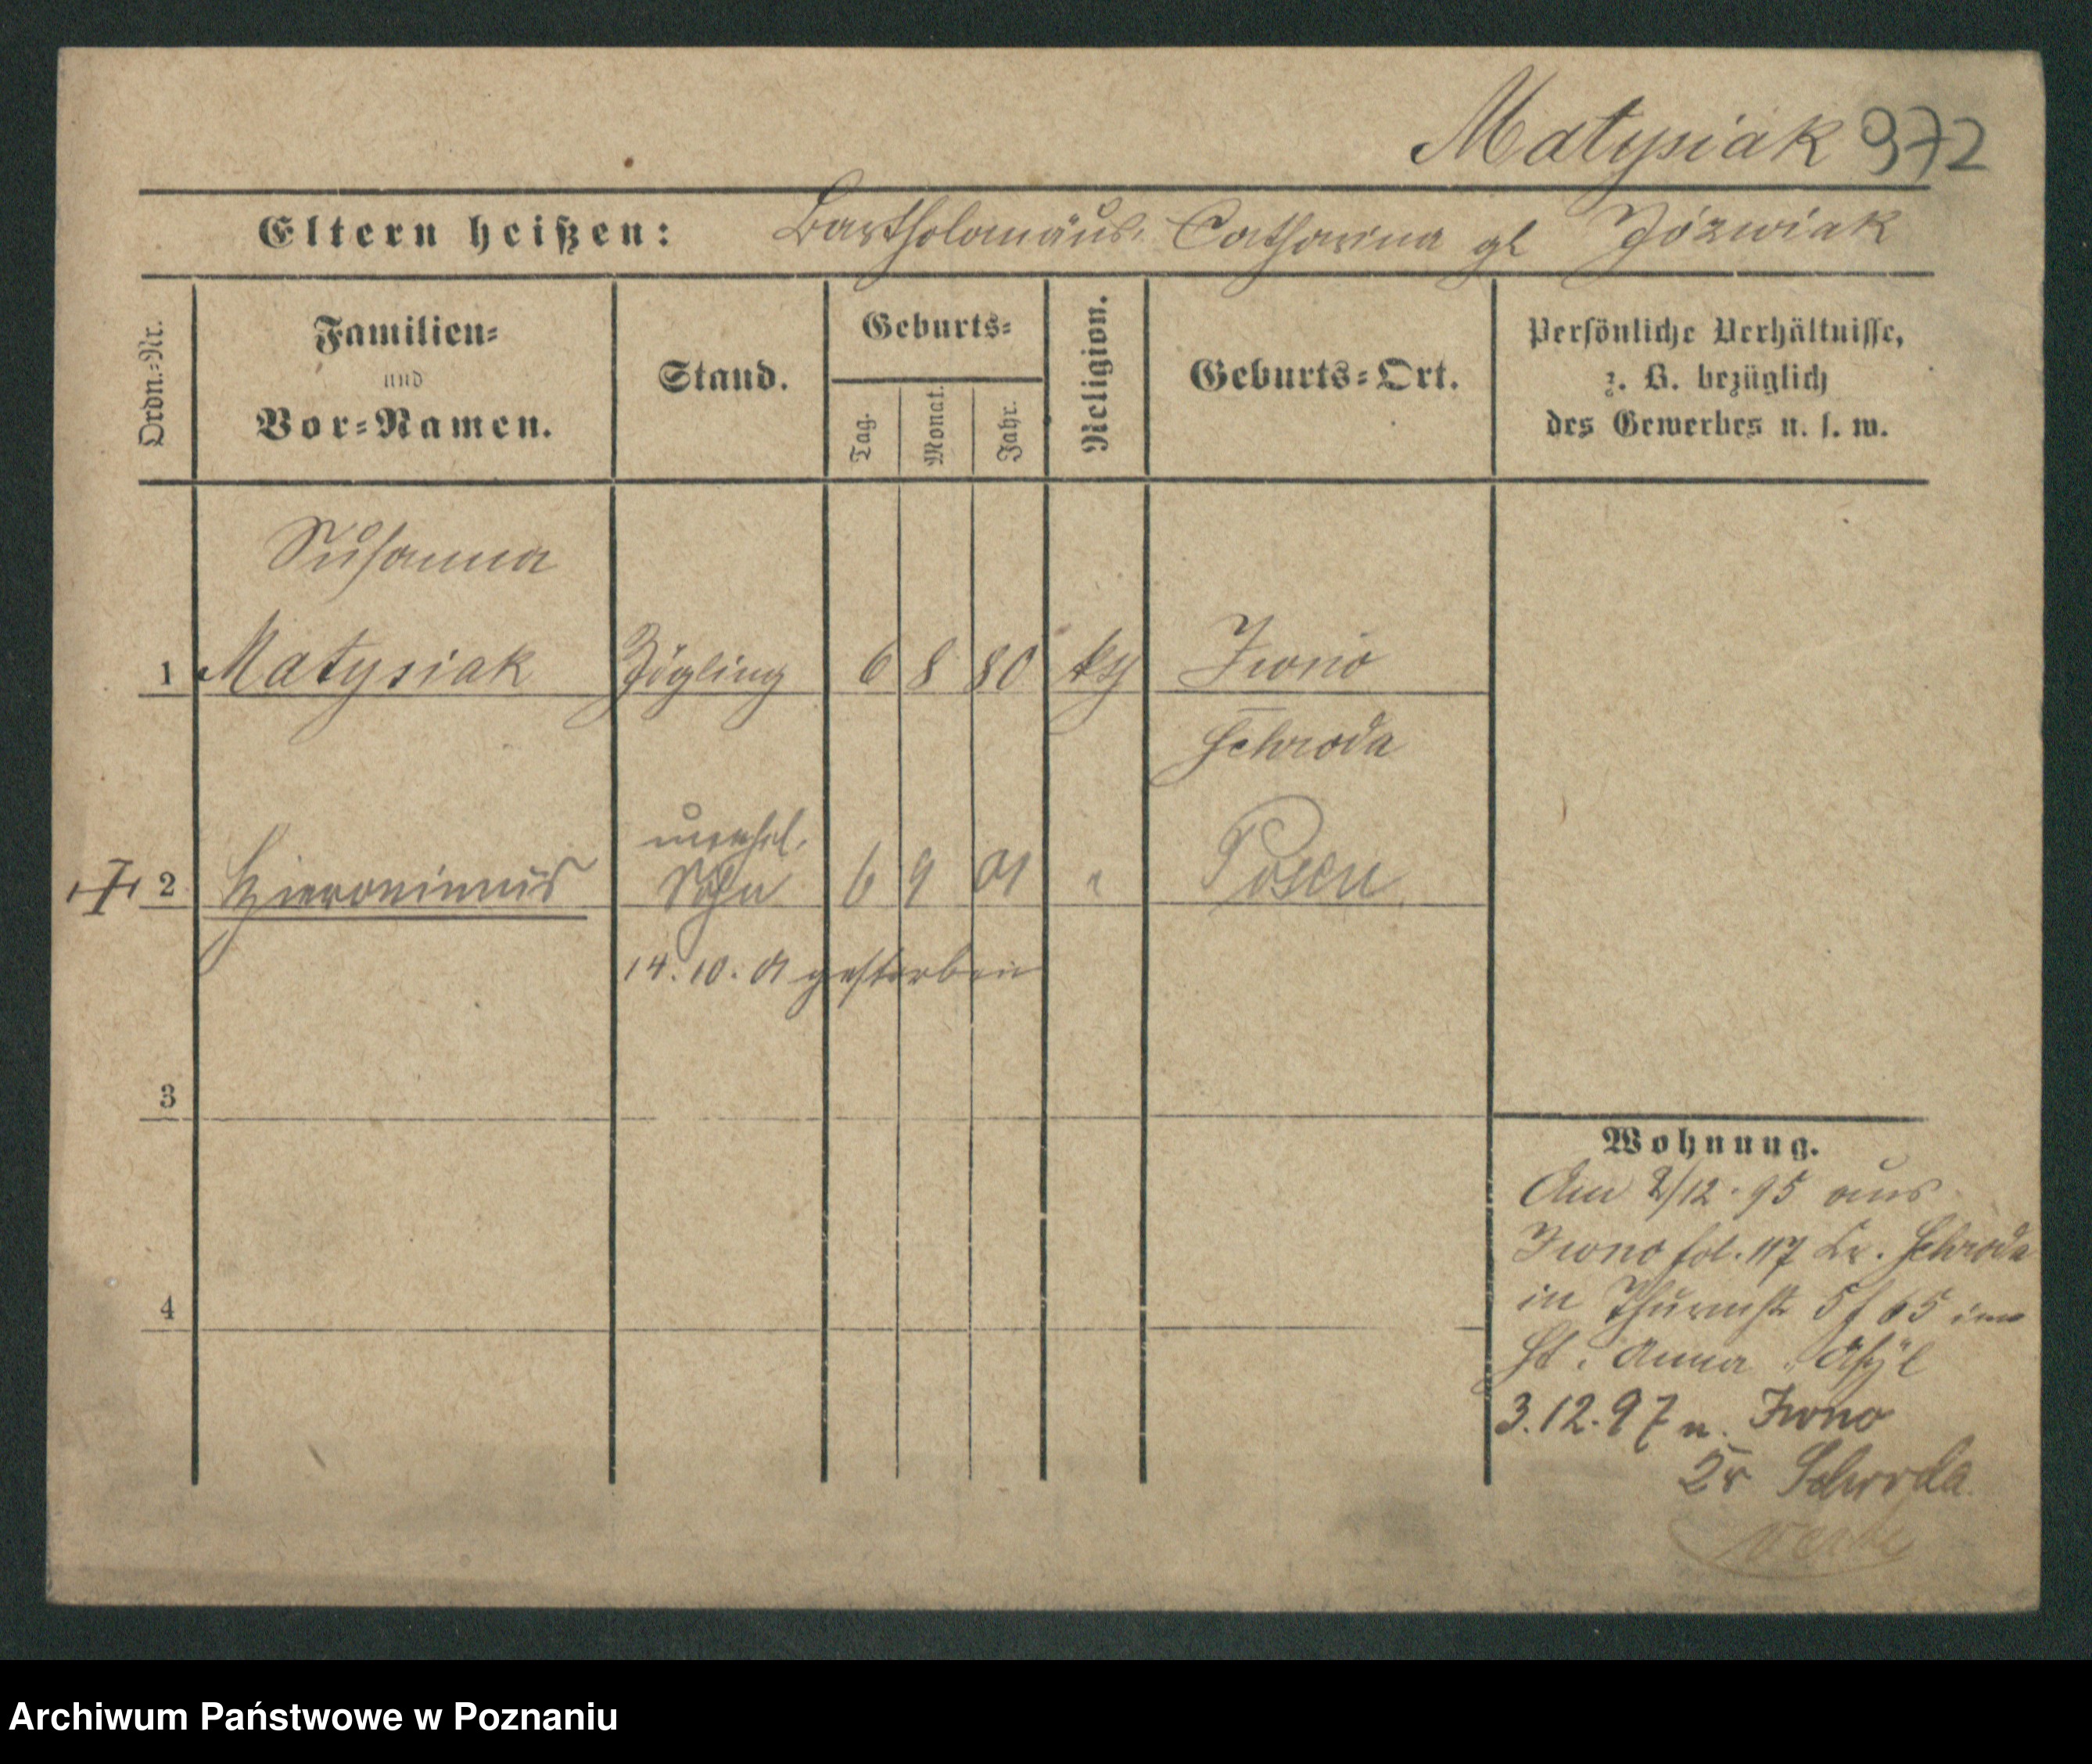 Matysiak 972
Eltern heißen: Bartholomäus, Catharina gb Józwiak
Ordn.-Nr.
Familien-
und
Vor-Namen.
Stand.
Geburts-
Tag.
Monat.
Jahr.
Religion.
Geburts-Ort.
Persönliche Verhältnisse,
z. B. bezüglich
des Gewerbes u. s. w.
Susanna
1 Matysiak Zögling 6 8 80 Iwno
Schroda
unehel.
2 Hieronimus Sohn 6 9 01 " Posen
14.10.01 gestorben
3
4
Wohnung.
Am 2/12.95 aus
Iwno fol. 117 Kr. Schroda
in Thurmstr 5 f 65 im
St. Anna Asyl
3.12.97 n. Iwno
Kr Schroda